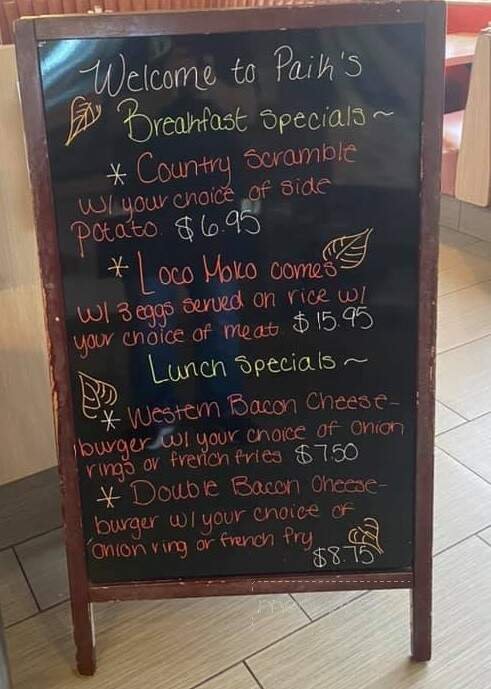 Welcome to Paik's
Breakfast Specials ~
* Country Scramble
w/ your choice of side
potato. $6.95
* Loco Moko comes
w/ 3 eggs served on rice w/
your choice of meat. $15.95
Lunch Specials ~
* Western Bacon Cheese-
burger w/ your choice of onion
rings or french fries $7.50
* Double Bacon Cheese-
burger w/ your choice of
onion ring or french fry
$8.75